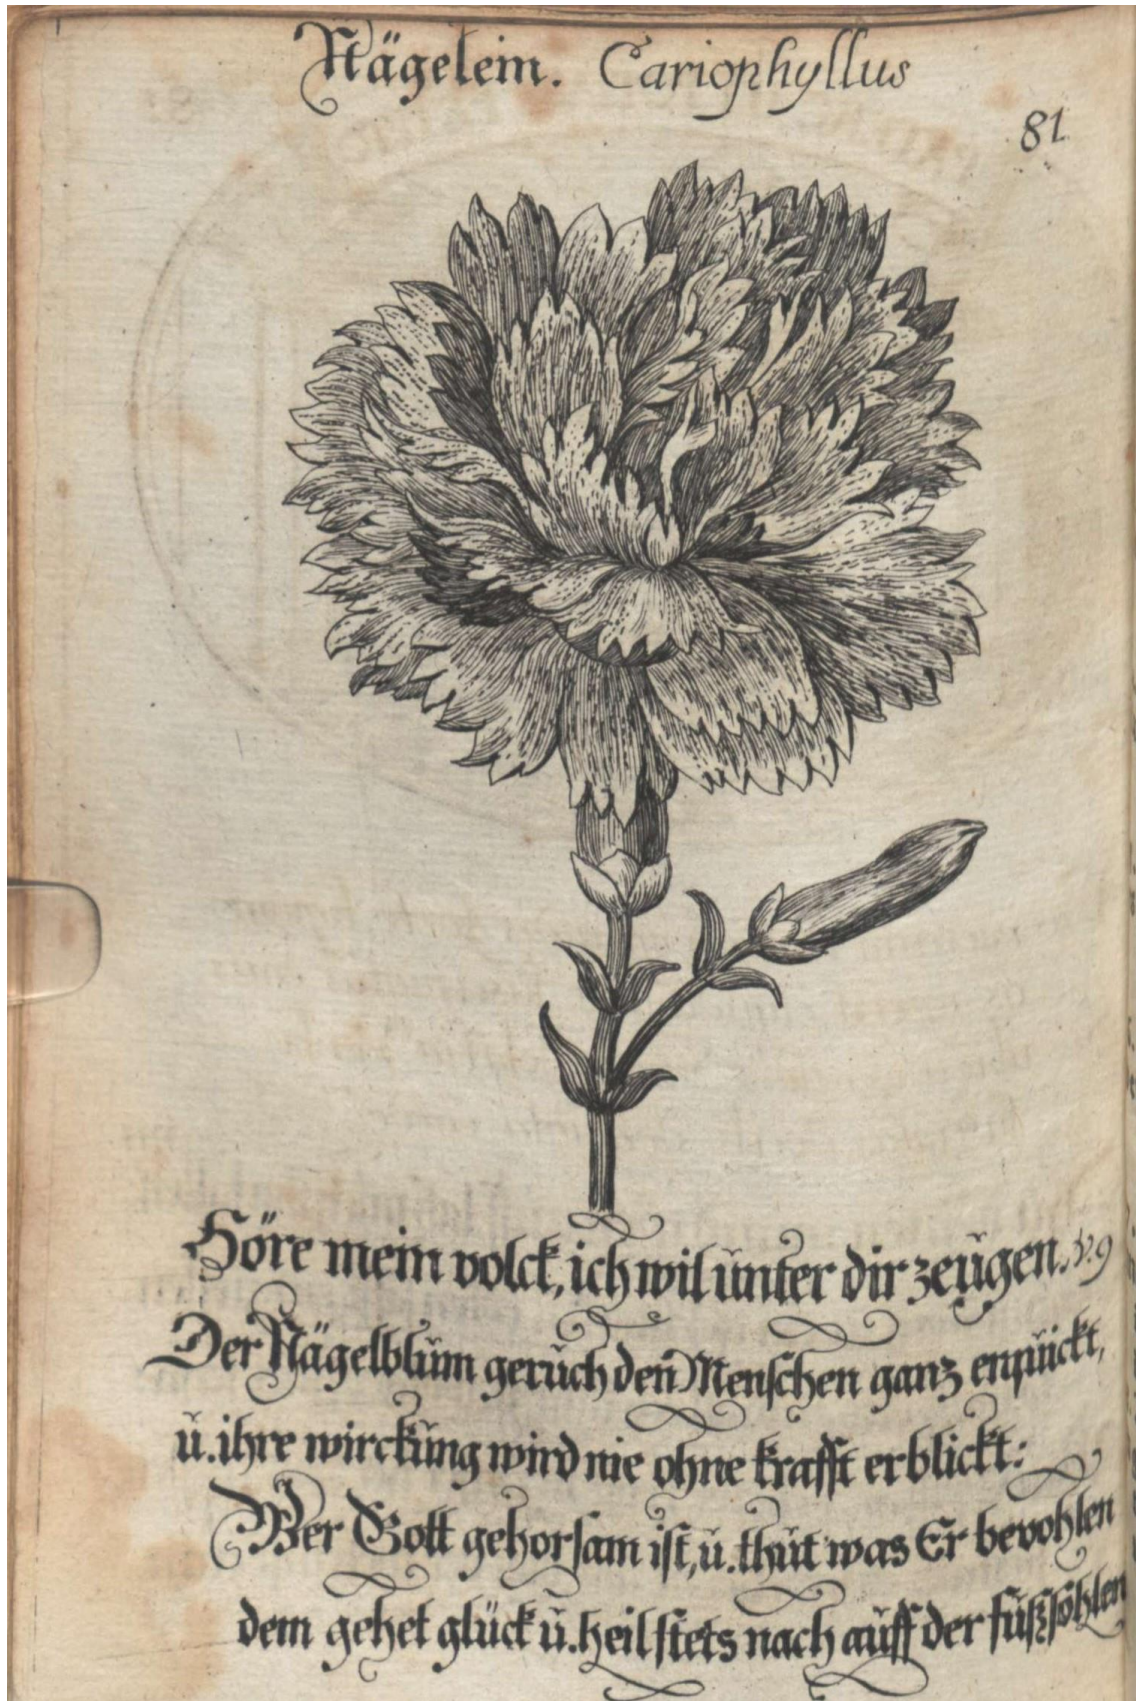 Nägelein. Cariophyllus
81
Höre mein volck, ich wil ŭnter dir zeŭgen. v. 9
Der Nägelblŭm gerŭch den Menschen ganz erqŭickt,
ŭ. ihre wirckŭng wird nie ohne krafft erblickt:
Wer Gott gehorsam ist, ŭ. thŭt was Er bevohlen
dem gehet glück ŭ. heil stets nach aŭff der fŭßsohlen